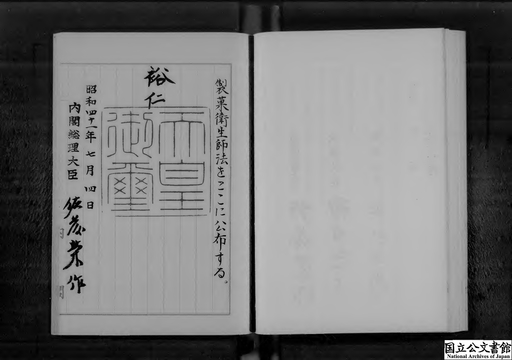 製菓衛生師法をここに公布する。
裕仁
天皇御璽
昭和四十一年七月四日
内閣総理大臣 佐藤栄作
国立公文書館
National Archives of Japan